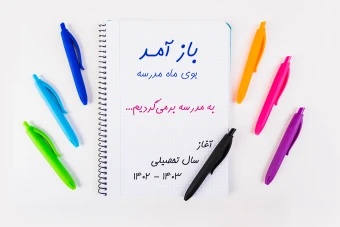 باز آمد
بوی ماه مدرسه
به مدرسه برمی‌گردیم...
آغاز
سال تحصیلی
۱۴۰۲ - ۱۴۰۳